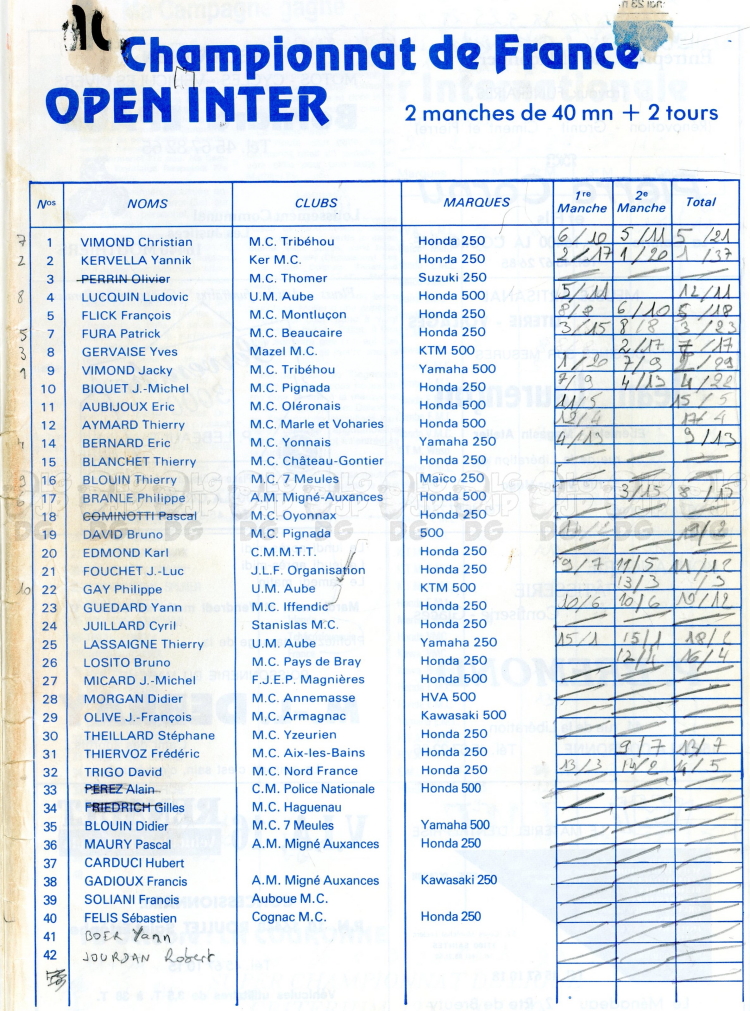 Championnat de France
OPEN INTER 2 manches de 40 mn + 2 tours
Nos NOMS CLUBS MARQUES 1re Manche 2e Manche Total
7 1 VIMOND Christian M.C. Tribéhou Honda 250 6/10 5/11 5/21
2 2 KERVELLA Yannik Ker M.C. Honda 250 2/17 1/20 1/37
3 PERRIN Olivier M.C. Thomer Suzuki 250
8 4 LUCQUIN Ludovic U.M. Aube Honda 500 5/11 12/11
5 FLICK François M.C. Montluçon Honda 250 8/8 6/10 5/18
5 7 FURA Patrick M.C. Beaucaire Honda 250 3/15 8/8 3/23
3 8 GERVAISE Yves Mazel M.C. KTM 500 2/17 7/17
1 9 VIMOND Jacky M.C. Tribéhou Yamaha 500 1/20 7/9
10 BIQUET J.-Michel M.C. Pignada Honda 250 7/9 4/13 4/22
11 AUBIJOUX Eric M.C. Oléronais Honda 500 11/5 15/5
12 AYMARD Thierry M.C. Marle et Voharies Honda 500 12/4 17/4
4 14 BERNARD Eric M.C. Yonnais Yamaha 250 4/13 9/13
15 BLANCHET Thierry M.C. Château-Gontier Honda 250
9 16 BLOUIN Thierry M.C. 7 Meules Maïco 250
6 17 BRANLE Philippe A.M. Migné-Auxances Honda 500 3/15 8/15
18 COMINOTTI Pascal M.C. Oyonnax Honda 250
19 DAVID Bruno M.C. Pignada 500 14/2 19/2
20 EDMOND Karl C.M.M.T.T. Honda 250
21 FOUCHET J.-Luc J.L.F. Organisation Honda 250 9/7 11/5 11/12
10 22 GAY Philippe U.M. Aube KTM 500 13/3 /3
23 GUEDARD Yann M.C. Iffendic Honda 250 10/6 10/6 10/12
24 JUILLARD Cyril Stanislas M.C. Honda 250
25 LASSAIGNE Thierry U.M. Aube Yamaha 250 15/1 15/1 18/2
26 LOSITO Bruno M.C. Pays de Bray Honda 250 12/4 16/4
27 MICARD J.-Michel F.J.E.P. Magnières Honda 500
28 MORGAN Didier M.C. Annemasse HVA 500
29 OLIVE J.-François M.C. Armagnac Kawasaki 500
30 THEILLARD Stéphane M.C. Yzeurien Honda 250
31 THIERVOZ Frédéric M.C. Aix-les-Bains Honda 250 9/7 13/7
32 TRIGO David M.C. Nord France Honda 250 13/3 14/2 14/5
33 PEREZ Alain C.M. Police Nationale Honda 500
34 FRIEDRICH Gilles M.C. Haguenau
35 BLOUIN Didier M.C. 7 Meules Yamaha 500
36 MAURY Pascal A.M. Migné Auxances Honda 250
37 CARDUCI Hubert
38 GADIOUX Francis A.M. Migné Auxances Kawasaki 250
39 SOLIANI Francis Auboue M.C.
40 FELIS Sébastien Cognac M.C. Honda 250
41 BOER Yann
42 JOURDAN Robert